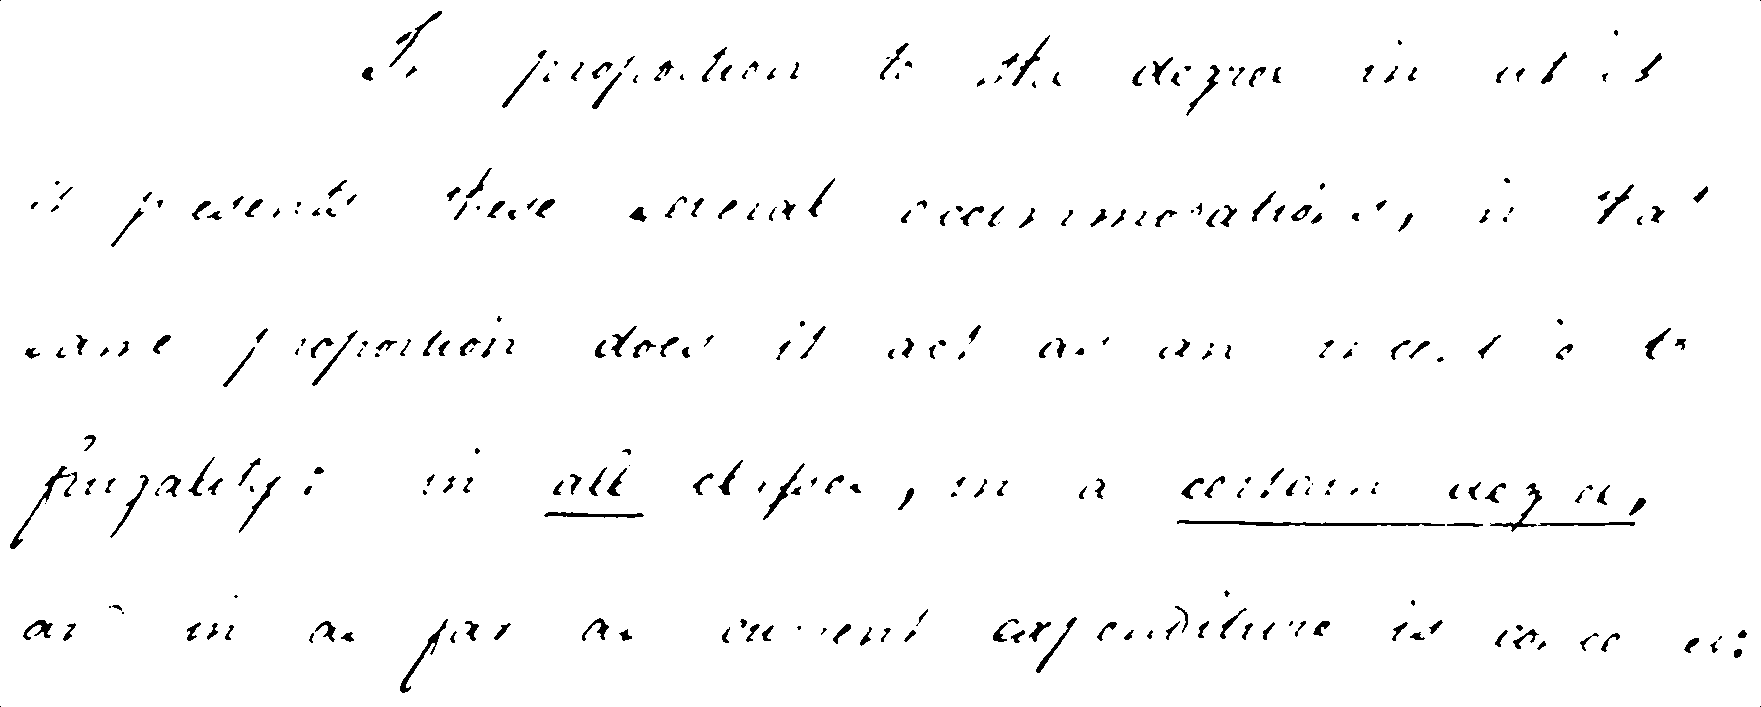 In proportion to the degree in wh it
it presents these several accommodations, in that
same proportion does it act as an incentive to
frugality: in all classes, in a certain degree,
and in as far as current expenditure is concer: